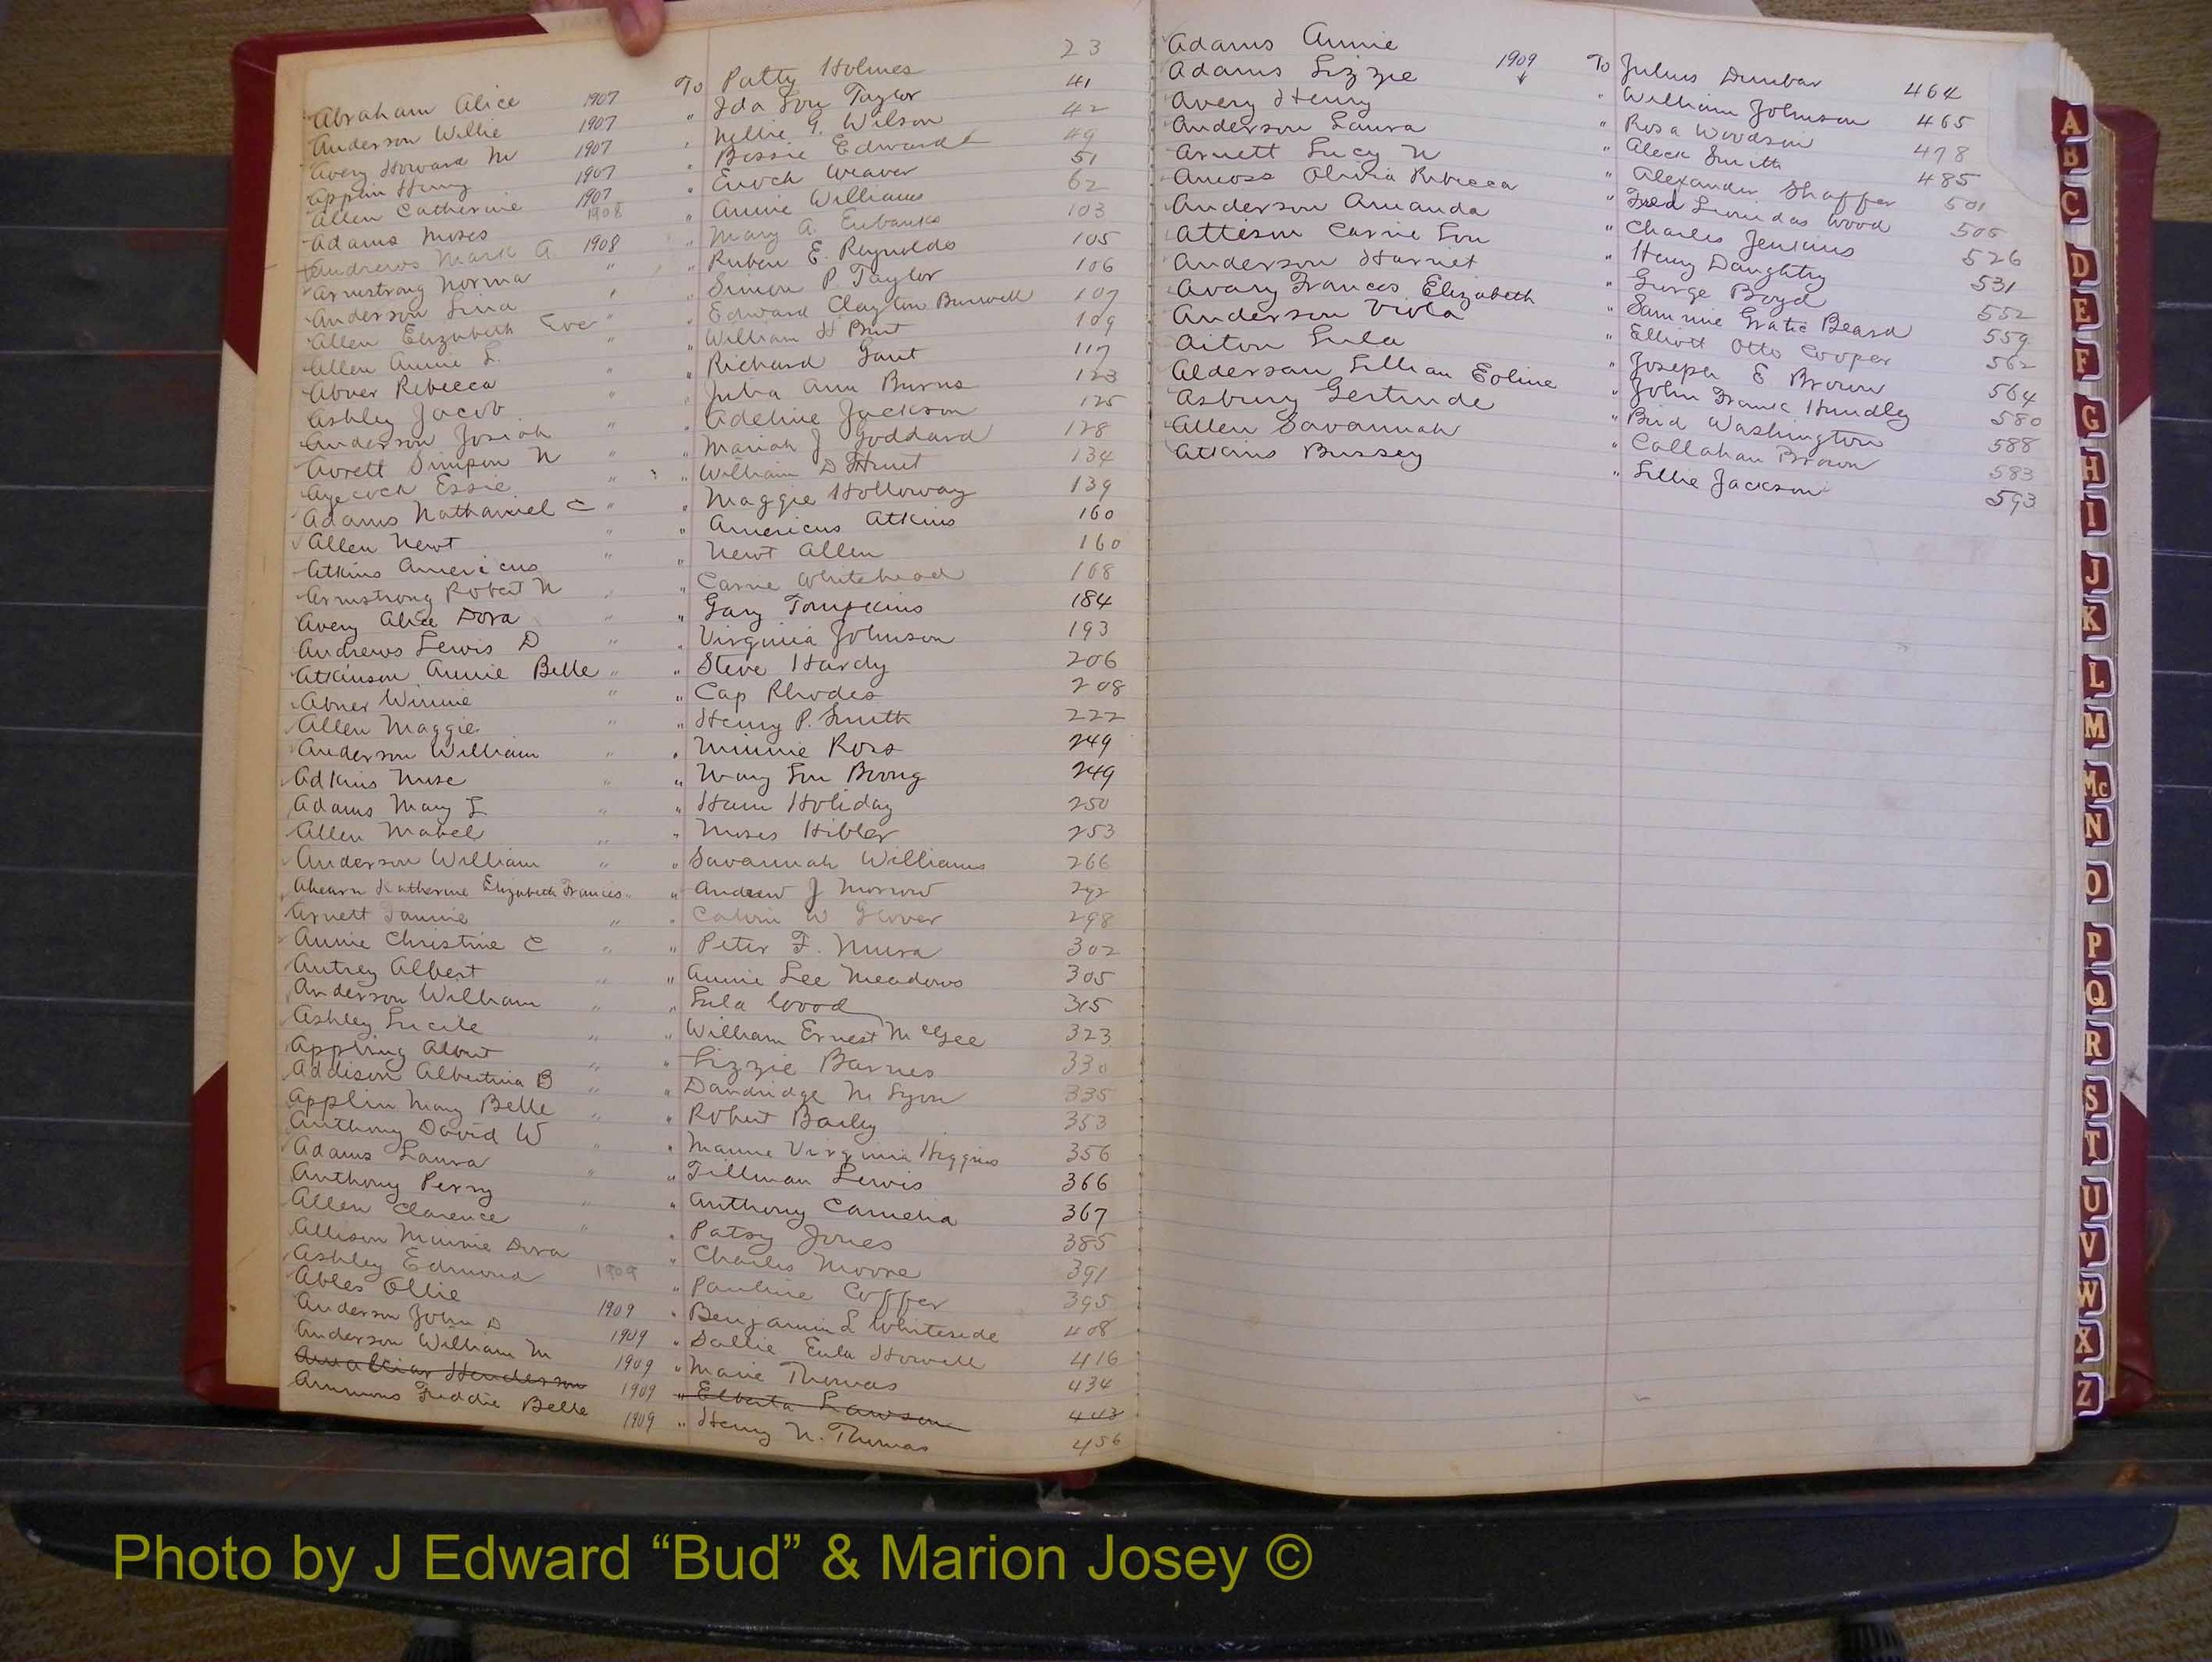 Abraham Alice 1907 To Patty Holmes 23
Anderson Willie 1907 " Ida Lou Taylor 41
Avery Howard M 1907 " Nellie G. Wilson 42
Applin Henry 1907 " Bessie Edwards 49
Allen Catherine 1907 " Enoch Weaver 51
Adams Moses 1908 " Annie Williams 62
Andrews Mark A. 1908 " Mary A. Eubanks 103
Armstrong Norma " " Ruben E. Reynolds 105
Anderson Lina " " Simeon P Taylor 106
Allen Elizabeth Eve " " Edward Clayton Burwell 107
Allen Annie L. " " William H 109
Abner Rebecca " " Richard Gant 117
Ashley Jacob " " Julia Ann Burns 123
Anderson Josiah " " Adeline Jackson 125
Avrett Simpson N " " Mariah J Goddard 128
Aycock Essie " " William D Hunt 134
Adams Nathaniel C " " Maggie Holloway 139
Allen Newt " " Americus Atkins 160
Atkins Americus " " Newt Allen 160
Armstrong Robert N " " Carrie Whitehead 168
Avery Alice Dora " " Gary Tompkins 184
Andrews Lewis D " " Virginia Johnson 193
Atkinson Annie Belle " " Steve Hardy 206
Abner Winnie " " Cap Rhodes 208
Allen Maggie " " Henry P. Smith 222
Anderson William " " Minnie Ross 249
Adkins Muse " " Mary Lou 249
Adams Mary L " " Ham Holiday 250
Allen Mabel " " Moses Hibler 253
Anderson William " " Savannah Williams 266
Ahearn Katherine Elizabeth Frances " " Andrew J Morrow 292
Arnett Fannie " " Calvin W Glover 298
Annie Christine C " " Peter F. Mura 302
Autrey Albert " " Annie Lee Meadows 305
Anderson William " " Lula Wood 315
Ashley Lucile " " William Ernest McGee 323
Appling Albert " " Lizzie Barnes 330
Addison Albertina B " " Dandridge M Lyon 335
Applin Mary Belle " " Robert Baily 353
Anthony David W " " Mamie Virginia Higgins 356
Adams Laura " " Tillman Lewis 366
Anthony Perry " " Anthony Camelia 367
Allen Clarence " " Patsy Jones 385
Allison Minnie Dora " Charles Moore 391
Ashley Edmond 1909 " Pauline Coffer 395
Ables Ollie 1909 " Benjamin L Whiteside 408
Anderson John D 1909 " Sallie Eula Howell 416
Anderson William M 1909 " Marie Thomas 434
Henderson 1909 " Elberta Lawson 443
Ammons Freddie Belle 1909 " Henry N. Thomas 456
Adams Annie 1909 To Julius Dunbar 464
Adams Lizzie " William Johnson 465
Avery Henry " Rosa Woodson 478
Anderson Laura " Aleck Smith 485
Arnett Lucy N " Alexander Shaffer 501
Amoss Olivia Rebecca " Fred Leonidas Wood 505
Anderson Amanda " Charles Jenkins 526
Atteson Carrie Lou " Henry Daughtry 531
Anderson Harriet " George Boyd 552
Avary Frances Elizabeth " Sammie Gratic Beard 559
Anderson Viola " Elliott Otto Cooper 562
Aiton Lula " Joseph E Brown 564
Alderson Lillian Eoline " John Frank Hundley 580
Asbury Gertrude " Bird Washington 588
Allen Savannah " Callahan Brown 583
Atkins Bussey " Lillie Jackson 593
A
B
C
D
E
F
G
H
I
J
K
L
M
Mc
N
O
P
Q
R
S
T
U
V
W
X
Z
Photo by J Edward “Bud” & Marion Josey ©